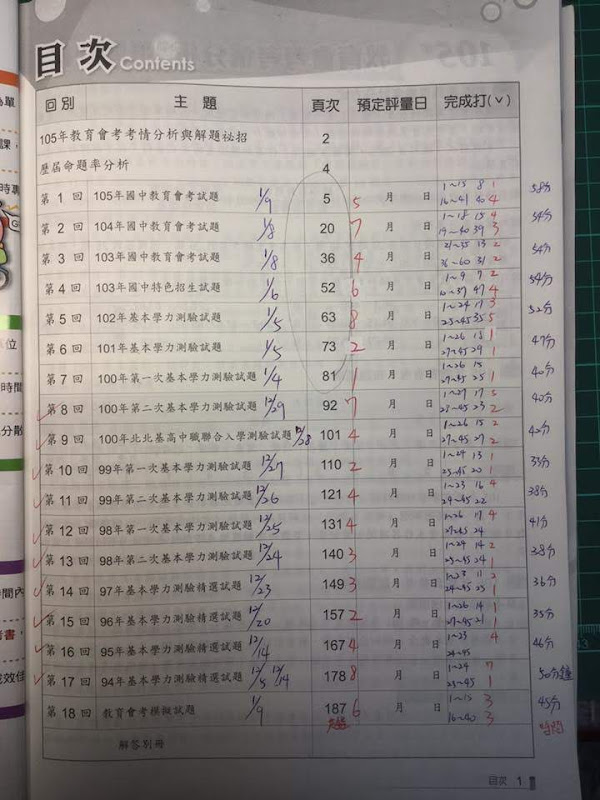 目次 Contents
回別 主題 頁次 預定評量日 完成打(∨)
105年教育會考考情分析與解題祕招 2
歷屆命題率分析 4
第 1 回 105年國中教育會考試題 1/9 5 5 月 日 1~15 8 1 58分
16~41 40 4
第 2 回 104年國中教育會考試題 1/8 20 7 月 日 1~18 15 4 54分
19~40 39 3
第 3 回 103年國中教育會考試題 1/8 36 4 月 日 21~35 13 2 54分
36~60 31 2
第 4 回 103年國中特色招生試題 1/6 52 6 月 日 1~9 7 2 54分
10~57 47 4
第 5 回 102年基本學力測驗試題 1/5 63 8 月 日 1~24 17 3 52分
25~45 35 5
第 6 回 101年基本學力測驗試題 1/5 73 2 月 日 1~26 18 1 47分
27~45 29 1
第 7 回 100年第一次基本學力測驗試題 1/4 81 1 月 日 1~26 15 40分
27~45 25 1
第 8 回 100年第二次基本學力測驗試題 12/29 92 7 月 日 1~27 17 5 40分
28~45 23 2
第 9 回 100年北北基高中職聯合入學測驗試題 12/28 101 4 月 日 1~26 15 2 42分
27~45 27 2
第 10 回 99年第一次基本學力測驗試題 12/27 110 2 月 日 1~24 13 1 35分
25~45 20 1
第 11 回 99年第二次基本學力測驗試題 12/26 121 4 月 日 1~23 16 4 38分
24~45 22
第 12 回 98年第一次基本學力測驗試題 12/25 131 4 月 日 1~26 17 4 41分
27~45 24
第 13 回 98年第二次基本學力測驗試題 12/24 140 3 月 日 1~24 14 2 38分
25~45 24 1
第 14 回 97年基本學力測驗精選試題 12/23 149 3 月 日 1~23 11 2 36分
24~45 25 1
第 15 回 96年基本學力測驗精選試題 12/20 157 2 月 日 1~26 14 1 35分
27~45 21 1
第 16 回 95年基本學力測驗精選試題 12/14 167 4 月 日 1~23 4 46分
24~45
第 17 回 94年基本學力測驗精選試題 12/5 12/14 178 8 月 日 1~24 7 50分鐘
25~45 1
第 18 回 教育會考模擬試題 1/9 187 6 月 日 1~15 3 45分
16~40 3
時間
解答別冊
目次 1